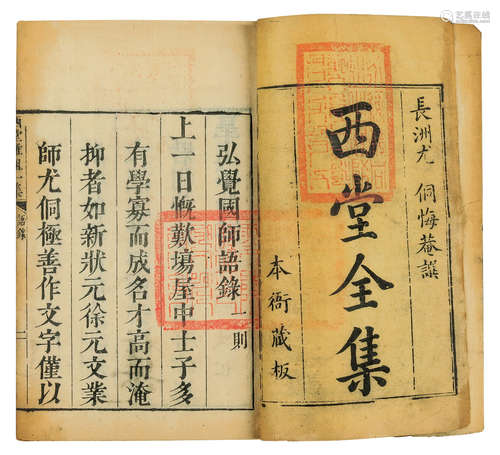 長洲尤 侗悔菴譔
西堂全集
本衙藏板
弘覺國師語錄一則
上一日慨歎場屋中士子多
有學寡而成名才高而淹
抑者如新狀元徐元文業
師尤侗極善作文字僅以